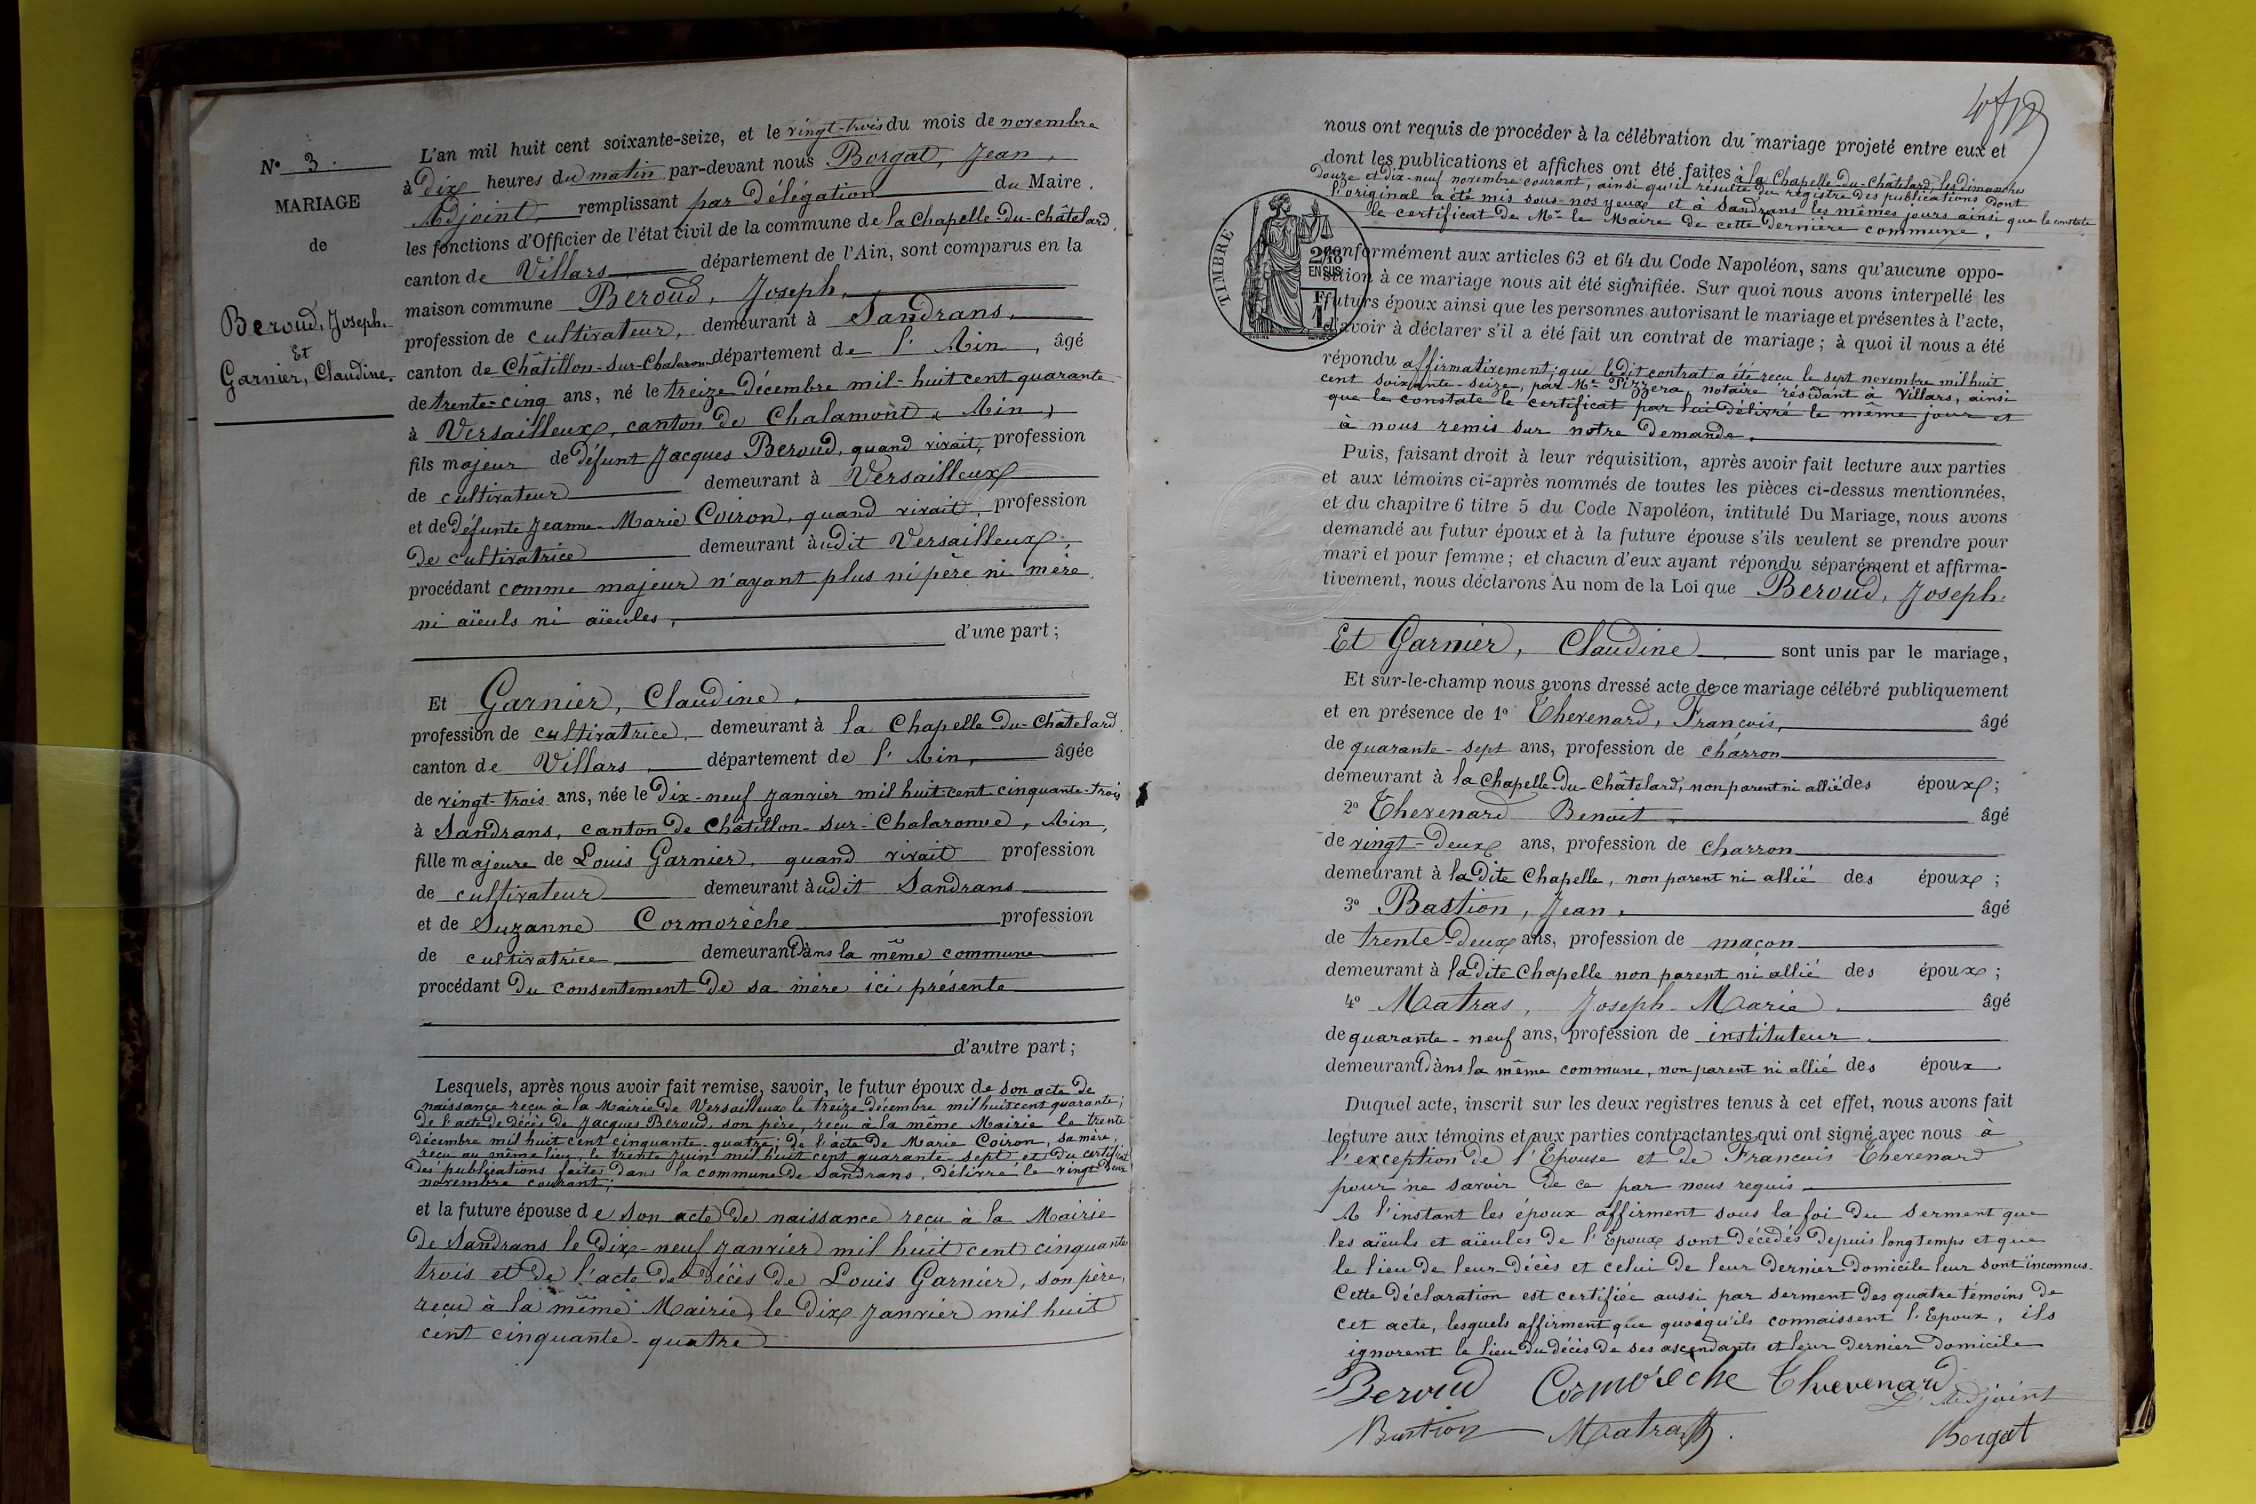 N° 3.
MARIAGE
de
Beroud, Joseph.
Et
Garnier, Claudine.
L'an mil huit cent soixante-seize, et le vingt-trois du mois de novembre
à Dix heures du matin par-devant nous Borgat, Jean,
Adjoint, remplissant par Délégation du Maire.
les fonctions d'Officier de l'état civil de la commune de la Chapelle-Du-Châtelard,
canton de Villars département de l'Ain, sont comparus en la
maison commune Beroud, Joseph,
profession de cultivateur, demeurant à Sandrans,
canton de Châtillon-sur-Chalaronne département de l'Ain, âgé
de trente-cinq ans, né le treize Décembre mil-huit cent quarante
à Versailleux, canton de Chalamont (Ain)
fils majeur de Défunt Jacques Beroud, quand vivait, profession
de cultivateur demeurant à Versailleux
et de Défunte Jeanne-Marie Coiron, quand vivait, profession
De cultivatrice demeurant àudit Versailleux,
procédant comme majeur n'ayant plus ni père ni mère
ni aïeuls ni aïeules,
d'une part;
Et Garnier, Claudine,
profession de cultivatrice, demeurant à la Chapelle-Du-Châtelard.
canton de Villars, département de l'Ain, âgée
de vingt-trois ans, née le Dix-neuf Janvier mil huit-cent cinquante-trois
à Sandrans, canton de Châtillon-sur-Chalaronne, Ain,
fille majeure de Louis Garnier, quand vivait profession
de cultivateur demeurant àudit Sandrans
et de Suzanne Cormorèche profession
de cultivatrice demeurant Dans la même commune
procédant Du consentement De sa mère ici présente
d'autre part;
Lesquels, après nous avoir fait remise, savoir, le futur époux de son acte De
naissance reçu à la Mairie De Versailleux le treize Décembre mil huit cent quarante;
De l'acte De Décès De Jacques Beroud, son père, reçu à la même Mairie le trente
Décembre mil huit cent cinquante-quatre; De l'acte De Marie Coiron, sa mère,
reçu au même lieu, le trente Juin mil huit cent quarante-sept et Du certificat
Des publications faites Dans la commune De Sandrans, Délivré le vingt Deux
novembre courant;
et la future épouse de son acte De naissance reçu à la Mairie
De Sandrans le Dix-neuf Janvier mil huit cent cinquante
trois et De l'acte De Décès De Louis Garnier, son père,
reçu à la même Mairie, le Dix Janvier mil huit
cent cinquante-quatre
nous ont requis de procéder à la célébration du mariage projeté entre eux et
dont les publications et affiches ont été faites à la Chapelle-Du-Châtelard, les Dimanches
Douze et Dix-neuf novembre courant, ainsi qu'il résulte Du registre Des publications Dont
l'original a été mis sous nos yeux et à Sandrans les mêmes jours ainsi que le constate
le certificat De Mr le Maire De cette Dernière commune.
TIMBRE
2/10
EN SUS
F
1
conformément aux articles 63 et 64 du Code Napoléon, sans qu'aucune oppo-
sition à ce mariage nous ait été signifiée. Sur quoi nous avons interpellé les
futurs époux ainsi que les personnes autorisant le mariage et présentes à l'acte,
d'avoir à déclarer s'il a été fait un contrat de mariage; à quoi il nous a été
répondu affirmativement; que leDit contrat a été reçu le sept novembre mil huit
cent soixante-seize, par Me Pizzera notaire résidant à Villars, ainsi
que le constate le certificat par lui Délivré le même jour et
à nous remis sur notre Demande.
Puis, faisant droit à leur réquisition, après avoir fait lecture aux parties
et aux témoins ci-après nommés de toutes les pièces ci-dessus mentionnées,
et du chapitre 6 titre 5 du Code Napoléon, intitulé Du Mariage, nous avons
demandé au futur époux et à la future épouse s'ils veulent se prendre pour
mari et pour femme; et chacun d'eux ayant répondu séparément et affirma-
tivement, nous déclarons Au nom de la Loi que Beroud, Joseph.
Et Garnier, Claudine sont unis par le mariage,
Et sur-le-champ nous avons dressé acte de ce mariage célébré publiquement
et en présence de 1° Thevenard, François, âgé
de quarante-sept ans, profession de charron
demeurant à la Chapelle-Du-Châtelard, non parent ni allié des époux;
2° Thevenard Benoit, âgé
de vingt-Deux ans, profession de charron
demeurant à laDite Chapelle, non parent ni allié des époux;
3° Bastion, Jean, âgé
de trente-Deux ans, profession de maçon
demeurant à laDite Chapelle non parent ni allié des époux;
4° Matras, Joseph-Marie, âgé
de quarante-neuf ans, profession de instituteur.
demeurant Dans la même commune, non parent ni allié des époux
Duquel acte, inscrit sur les deux registres tenus à cet effet, nous avons fait
lecture aux témoins et aux parties contractantes qui ont signé avec nous à
l'exception De l'Epouse et De Francois Thevenard
pour ne savoir De ce par nous requis
A l'instant les époux affirment sous la foi Du serment que
les aïeuls et aïeules De l'Epoux sont Décédés Depuis longtemps et que
le lieu De leur Décès et celui De leur Dernier Domicile leur sont inconnus.
Cette Déclaration est certifiée aussi par serment Des quatre témoins De
cet acte, lesquels affirment que quoiqu'ils connaissent l'Epoux, ils
ignorent le lieu Du Décès De ses ascendants et leur Dernier Domicile
Beroud Cormorèche Thevenard
L'Adjoint
Bastion Matras Borgat